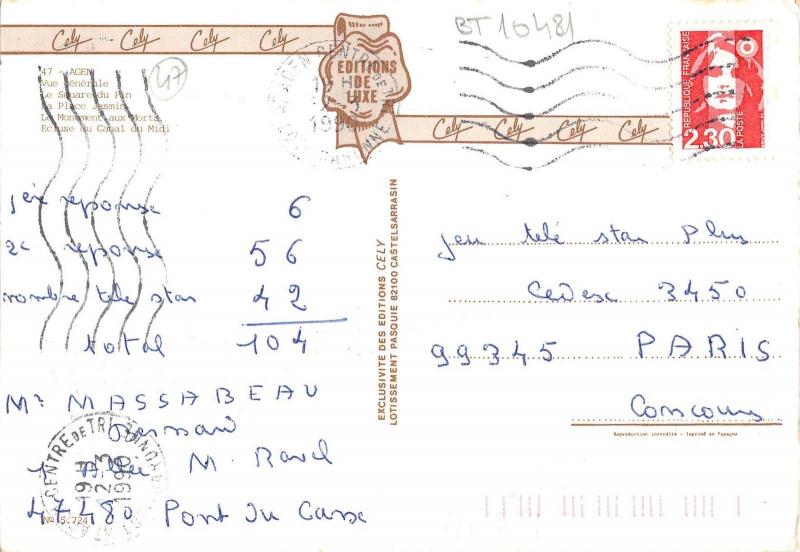 Cely Cely Cely Cely
EDITIONS
DE
LUXE
Cely Cely Cely Cely
BT 10481
47
REPUBLIQUE FRANÇAISE
2.30
LA POSTE
47 - AGEN
Vue Générale
Le Square du Pin
La Place Jasmin
Le Monument aux Morts
Ecluse du Canal du Midi
1ère reponse 6
2e reponse 56
nombre télé star 42
total 104
Mr MASSABEAU
Bernard
1 Allée M. Ravel
47480 Pont du Casse
Nº 5.724
CENTRE DE TRI
19 H
2 - 3
1990
EXCLUSIVITE DES EDITIONS CELY
LOTISSEMENT PASQUIE 82100 CASTELSARRASIN
jeu télé star Plus
Cedesc 3450
99345 PARIS
Concours
Reproduction interdite - Imprimé en Espagne